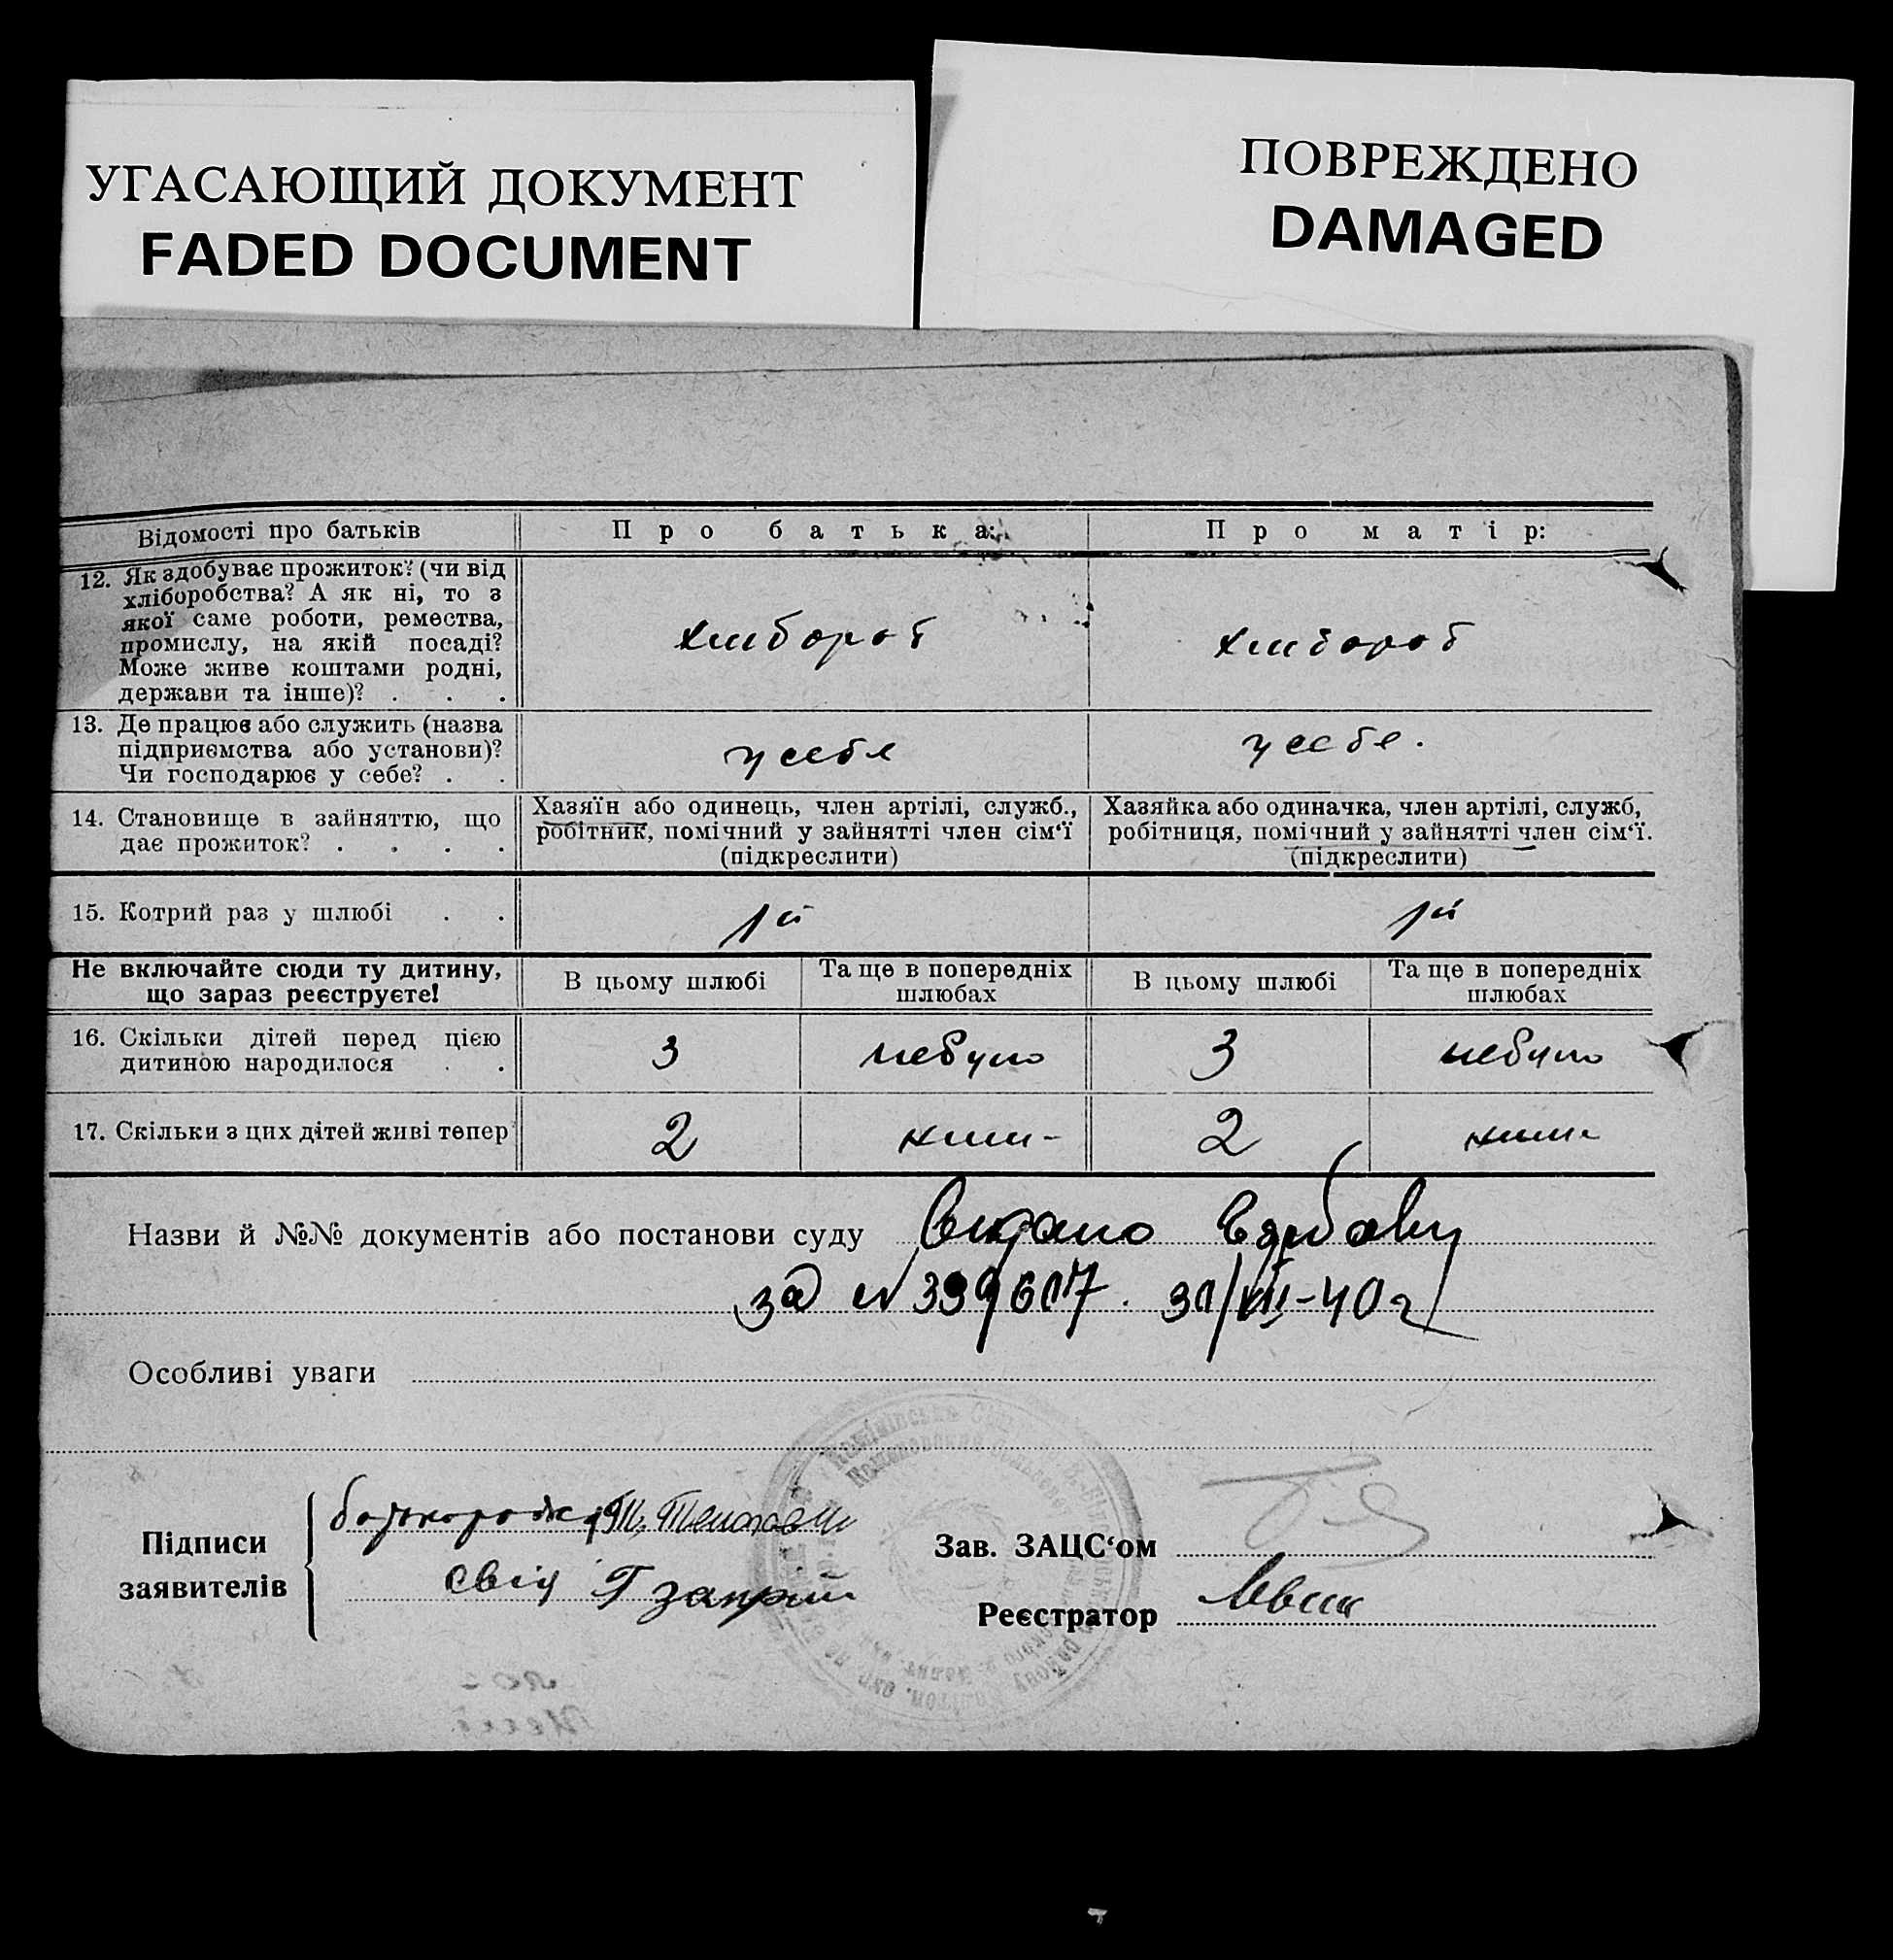 УГАСАЮЩИЙ ДОКУМЕНТ
FADED DOCUMENT
ПОВРЕЖДЕНО
DAMAGED
Відомості про батьків Про батька: Про матір:
12. Як здобуває прожиток? (чи від
хліборобства? А як ні, то з
якої саме роботи, ремества,
промислу, на якій посаді?
Може живе коштами родні,
держави та інше)? . . .
хлібороб хлібороб
13. Де працює або служить (назва
підприємства або установи)?
Чи господарює у себе? . .
у себе у себе.
14. Становище в зайняттю, що
дає прожиток? . . . .
Хазяїн або одинець, член артілі, служб.,
робітник, помічний у зайнятті член сім‘ї
(підкреслити)
Хазяйка або одиначка, член артілі, служб,
робітниця, помічний у зайнятті член сім‘ї.
(підкреслити)
15. Котрий раз у шлюбі . . 1й 1й
Не включайте сюди ту дитину,
що зараз реєструєте!
В цьому шлюбі
Та ще в попередніх
шлюбах
В цьому шлюбі
Та ще в попередніх
шлюбах
16. Скільки дітей перед цією
дитиною народилося . .
3 небуло 3 небуло
17. Скільки з цих дітей живі тепер 2 2
Назви й №№ документів або постанови суду
за № 399607. 31/VII-40 г
Особливі уваги
Підписи
заявителів
свід
Зав. ЗАЦС‘ом
Реєстратор